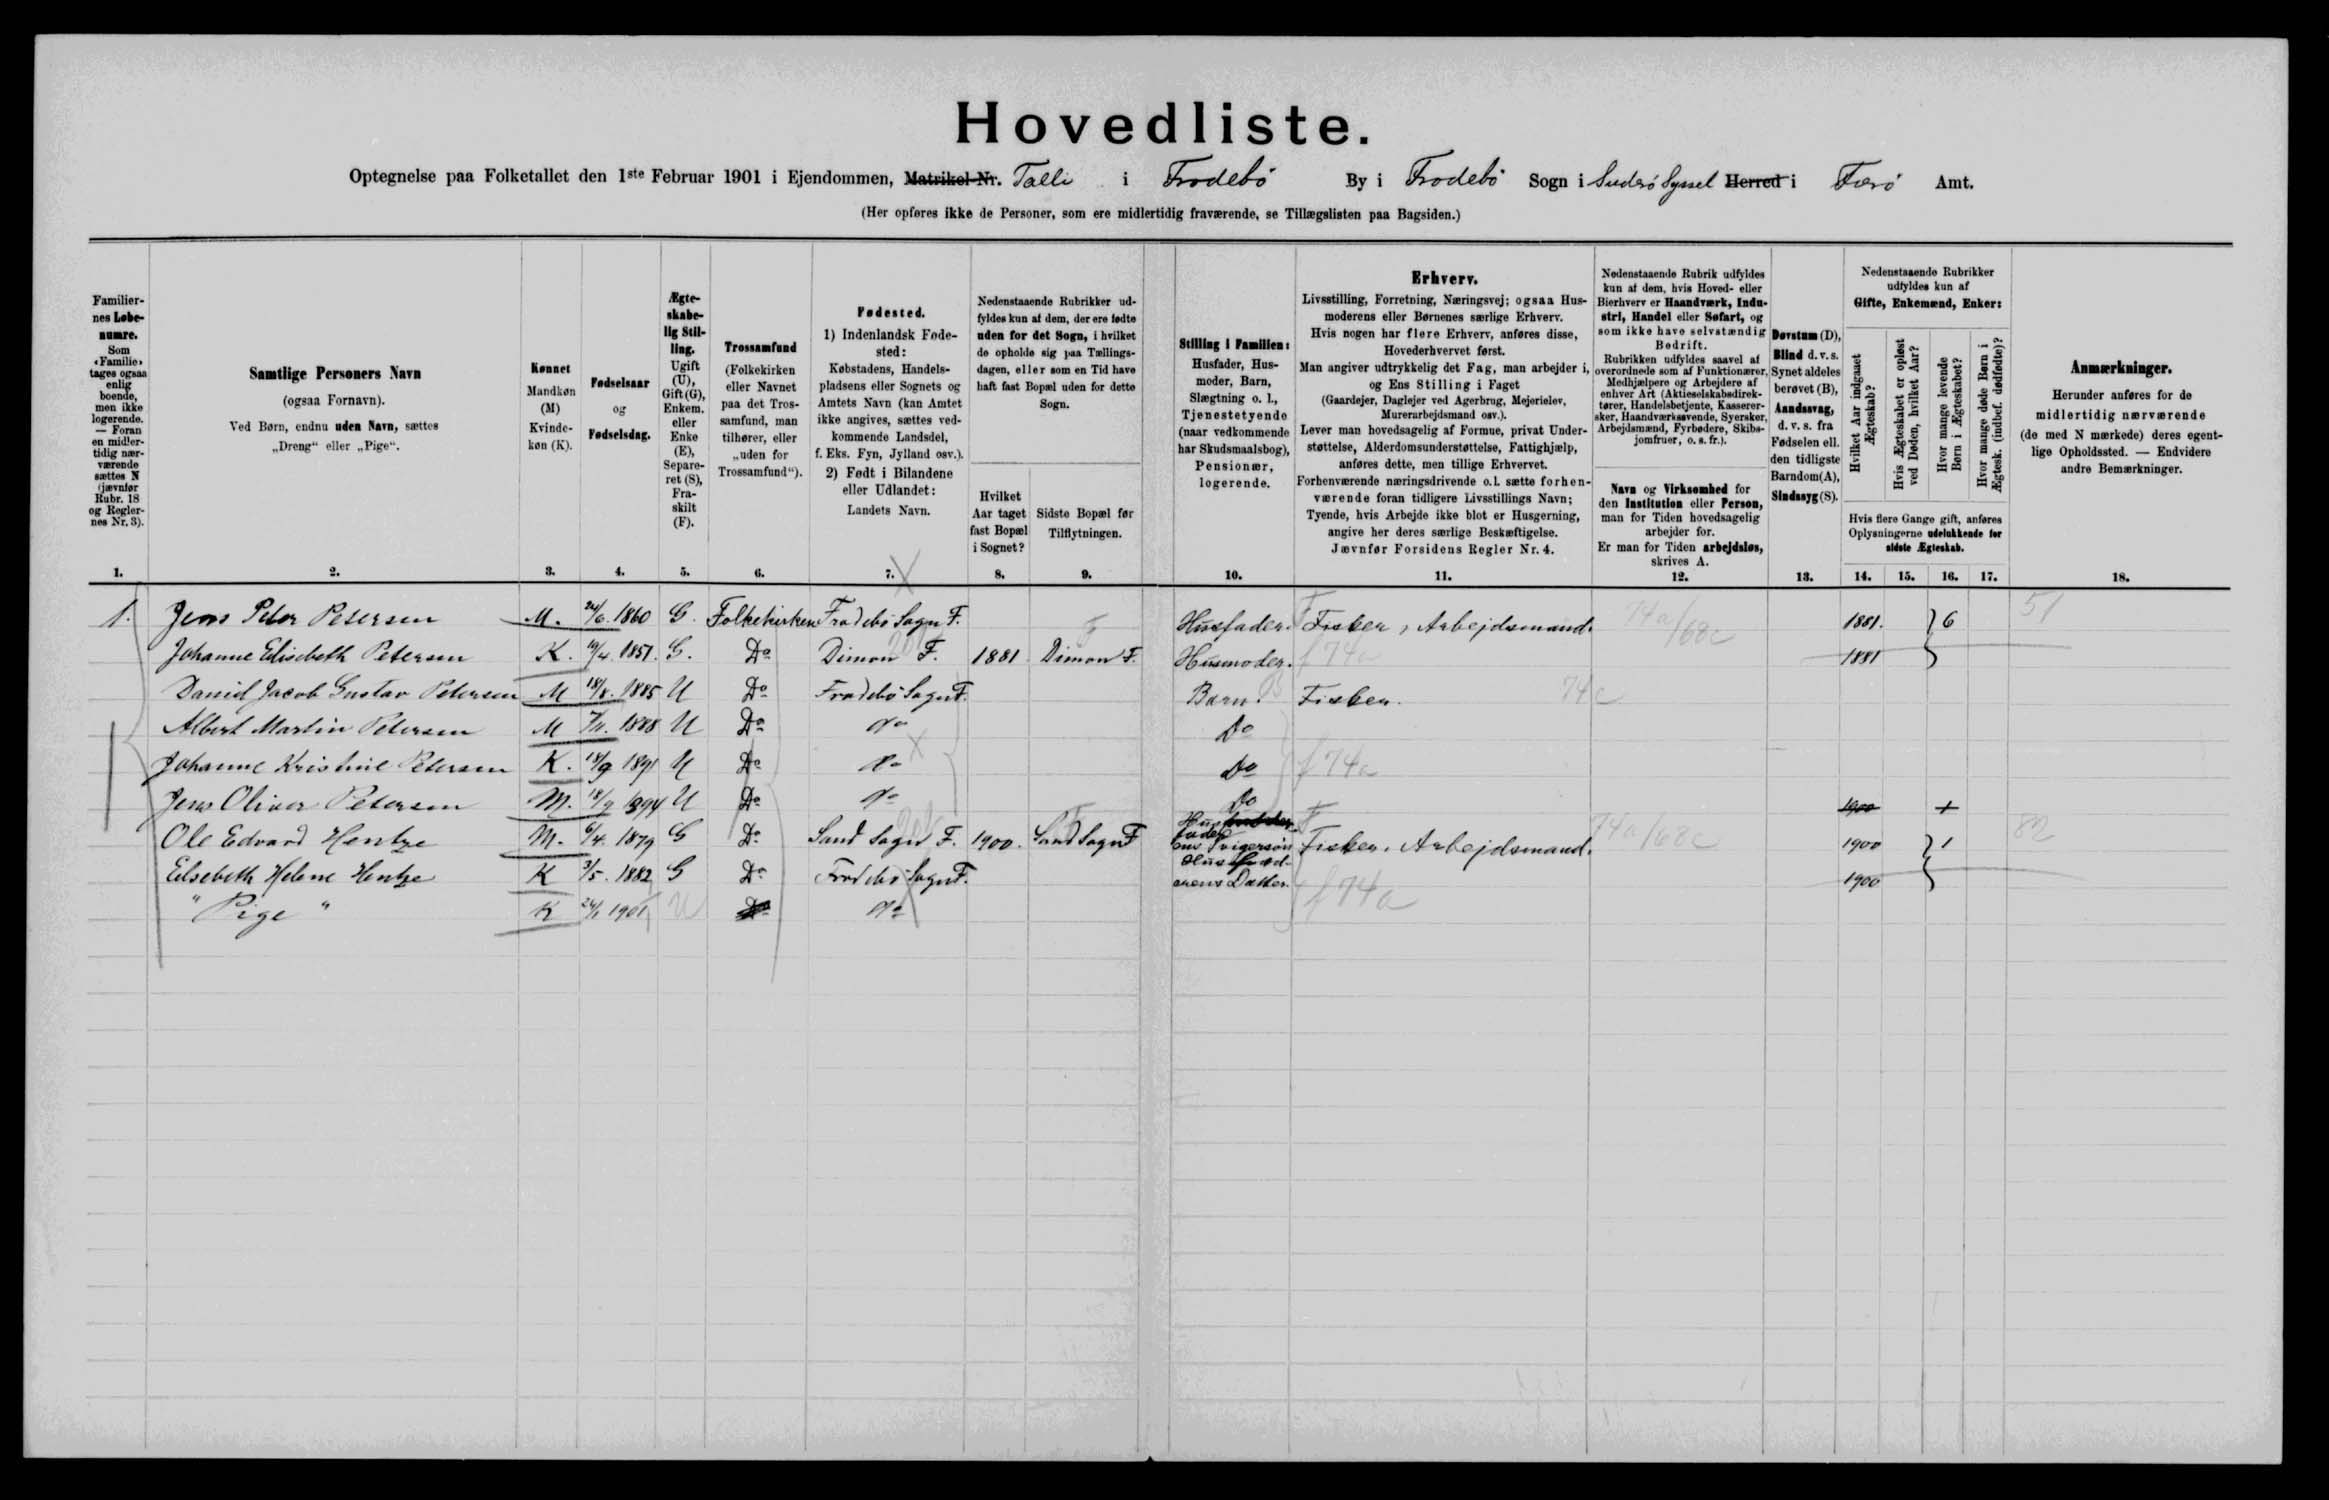 Hovedliste.
Optegnelse paa Folketallet den 1ste Februar 1901 i Ejendommen, Matrikel-Nr. Talli i Frodebö By i Frodebö Sogn i Suderö Syssel Herred i Færö Amt.
(Her opføres ikke de Personer, som ere midlertidig fraværende, se Tillægslisten paa Bagsiden.)
Familiernes Løbenumre.
Som «Familie» tages ogsaa enlig boende, men ikke logerende. — Foran en midlertidig nærværende sættes N (jævnfør Rubr. 18 og Reglernes Nr. 3).
Samtlige Personers Navn
(ogsaa Fornavn).
Ved Børn, endnu uden Navn, sættes
„Dreng“ eller „Pige“.
Kønnet
Mandkøn (M) Kvindekøn (K).
Fødselsaar
og
Fødselsdag.
Ægteskabelig Stilling.
Ugift (U), Gift (G), Enkem. eller Enke (E), Separeret (S), Fraskilt (F).
Trossamfund
(Folkekirken eller Navnet paa det Trossamfund, man tilhører, eller „uden for Trossamfund“).
Fødested.
1) Indenlandsk Fødested:
Købstadens, Handelspladsens eller Sognets og Amtets Navn (kan Amtet ikke angives, sættes vedkommende Landsdel, f. Eks. Fyn, Jylland osv.).
2) Født i Bilandene eller Udlandet:
Landets Navn.
Nedenstaaende Rubrikker udfyldes kun af dem, der ere fødte uden for det Sogn, i hvilket de opholde sig paa Tællingsdagen, eller som en Tid have haft fast Bopæl uden for dette Sogn.
Hvilket Aar taget fast Bopæl i Sognet?
Sidste Bopæl før Tilflytningen.
Stilling i Familien:
Husfader, Husmoder, Barn, Slægtning o. l., Tjenestetyende (naar vedkommende har Skudsmaalsbog), Pensionær, logerende.
Erhverv.
Livsstilling, Forretning, Næringsvej; ogsaa Husmoderens eller Børnenes særlige Erhverv.
Hvis nogen har flere Erhverv, anføres disse, Hovederhvervet først.
Man angiver udtrykkelig det Fag, man arbejder i, og Ens Stilling i Faget
(Gaardejer, Daglejer ved Agerbrug, Mejerielev, Murerarbejdsmand osv.).
Lever man hovedsagelig af Formue, privat Understøttelse, Alderdomsunderstøttelse, Fattighjælp, anføres dette, men tillige Erhvervet.
Forhenværende næringsdrivende o. l. sætte forhenværende foran tidligere Livsstillings Navn;
Tyende, hvis Arbejde ikke blot er Husgerning, angive her deres særlige Beskæftigelse.
Jævnfør Forsidens Regler Nr. 4.
Nedenstaaende Rubrik udfyldes kun af dem, hvis Hoved- eller Bierhverv er Haandværk, Industri, Handel eller Søfart, og som ikke have selvstændig Bedrift.
Rubrikken udfyldes saavel af overordnede som af Funktionærer, Medhjælpere og Arbejdere af enhver Art (Aktieselskabsdirektører, Handelsbetjente, Kasserersker, Haandværkssvende, Syersker, Arbejdsmænd, Fyrbødere, Skibsjomfruer, o. s. fr.).
Navn og Virksomhed for den Institution eller Person, man for Tiden hovedsagelig arbejder for.
Er man for Tiden arbejdsløs, skrives A.
Døvstum (D), Blind d. v. s. Synet aldeles berøvet (B), Aandssvag, d. v. s. fra Fødselen ell. den tidligste Barndom (A), Sindssyg (S).
Nedenstaaende Rubrikker udfyldes kun af
Gifte, Enkemænd, Enker:
Hvilket Aar indgaaet Ægteskab?
Hvis Ægteskabet er opløst ved Døden, hvilket Aar?
Hvor mange levende Børn i Ægteskabet?
Hvor mange døde Børn i Ægtesk. (indbef. dødfødte)?
Hvis flere Gange gift, anføres Oplysningerne udelukkende for sidste Ægteskab.
Anmærkninger.
Herunder anføres for de midlertidig nærværende (de med N mærkede) deres egentlige Opholdssted. — Endvidere andre Bemærkninger.
1. 2. 3. 4. 5. 6. 7. 8. 9. 10. 11. 12. 13. 14. 15. 16. 17. 18.
1. Jens Peter Petersen M. 24/6. 1860 G. Folkekirken Frodebö Sogn F. Husfader. Fisker, Arbejdsmand. 74a/68c 1881. 6 51
Johanne Elisebeth Petersen K. 19/4. 1857. G. Do Dimon F. 1881 Dimon F. Husmoder. f 74a 1881
Daniel Jacob Gustav Petersen M 18/8. 1885 U Do Frodebö Sogn F. Barn. Fisker. 74c
Albert Martin Petersen M 7/11. 1888 U Do do Do
Johanne Kristine Petersen K. 18/9 1891 U Do do Do f 74a
Jens Oliver Petersen M. 18/9 1894 U Do do Do 1900 1
Ole Edvard Hentze M. 6/4. 1879 G Do Sand Sogn F. 1900. Sand Sogn F Husfaderens Svigersön Fisker, Arbejdsmand. 74a/68c 1900 1 82
Elsebeth Helene Hentze K 3/5. 1882 G Do Frodebö Sogn F. Husfaderens Datter. f 74a 1900
" Pige " K 24/1 1901 U Do do